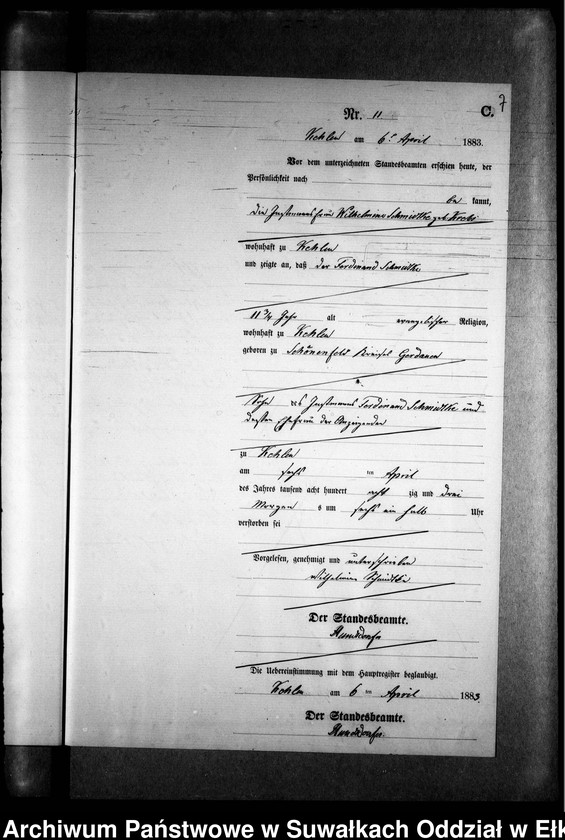 7
Nr. 11 C.
Kehlen am 6t April 1883.
Vor dem unterzeichneten Standesbeamten erschien heute, der
Persönlichkeit nach
be kannt,
die Instmannsfrau Wilhelmine Schmidtke geb. Krebs
wohnhaft zu Kehlen
und zeigte an, daß der Ferdinand Schmidtke
11 3/4 Jahr alt evangelischer Religion,
wohnhaft zu Kehlen
geboren zu Schönenfeld Kreises Gerdauen
Sohn des Instmanns Ferdinand Schmidtke und
dessen Ehefrau der Anzeigenden
zu Kehlen
am sechs ten April
des Jahres tausend acht hundert acht zig und drei
Morgens um sechs ein halb Uhr
verstorben sei
Vorgelesen, genehmigt und unterschrieben
Wilhelmine Schmidtke
Der Standesbeamte.
Die Uebereinstimmung mit dem Hauptregister beglaubigt.
Kehlen am 6 ten April 1883.
Der Standesbeamte.
Archiwum Państwowe w Suwałkach Oddział w Ełk